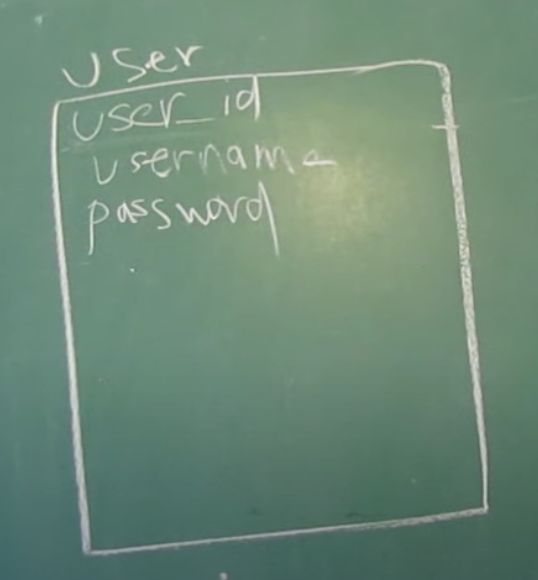 User
user_id
username
password